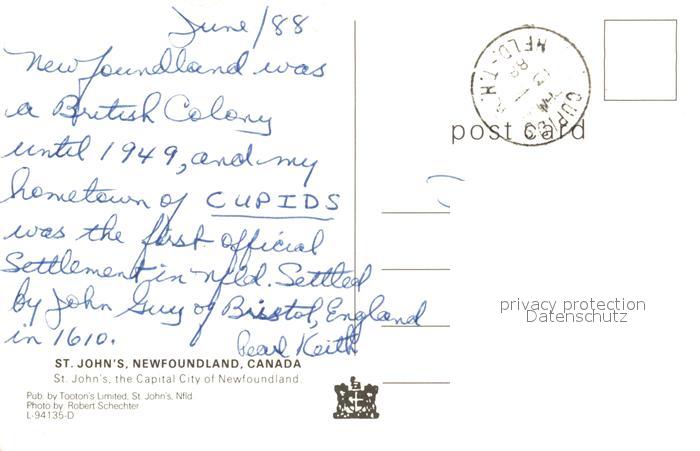 June/88
Newfoundland was
a British Colony
until 1949, and my
hometown of CUPIDS
was the first official
Settlement in Nfld. Settled
by John Guy of Bristol, England
in 1610.
Pearl Keith
ST. JOHN'S, NEWFOUNDLAND, CANADA
St. John's, the Capital City of Newfoundland.
Pub. by Tooton's Limited, St. John's, Nfld.
Photo by Robert Schechter
L-94135-D
CUPIDS
NFLD.-T.N.
88
post card
privacy protection
Datenschutz